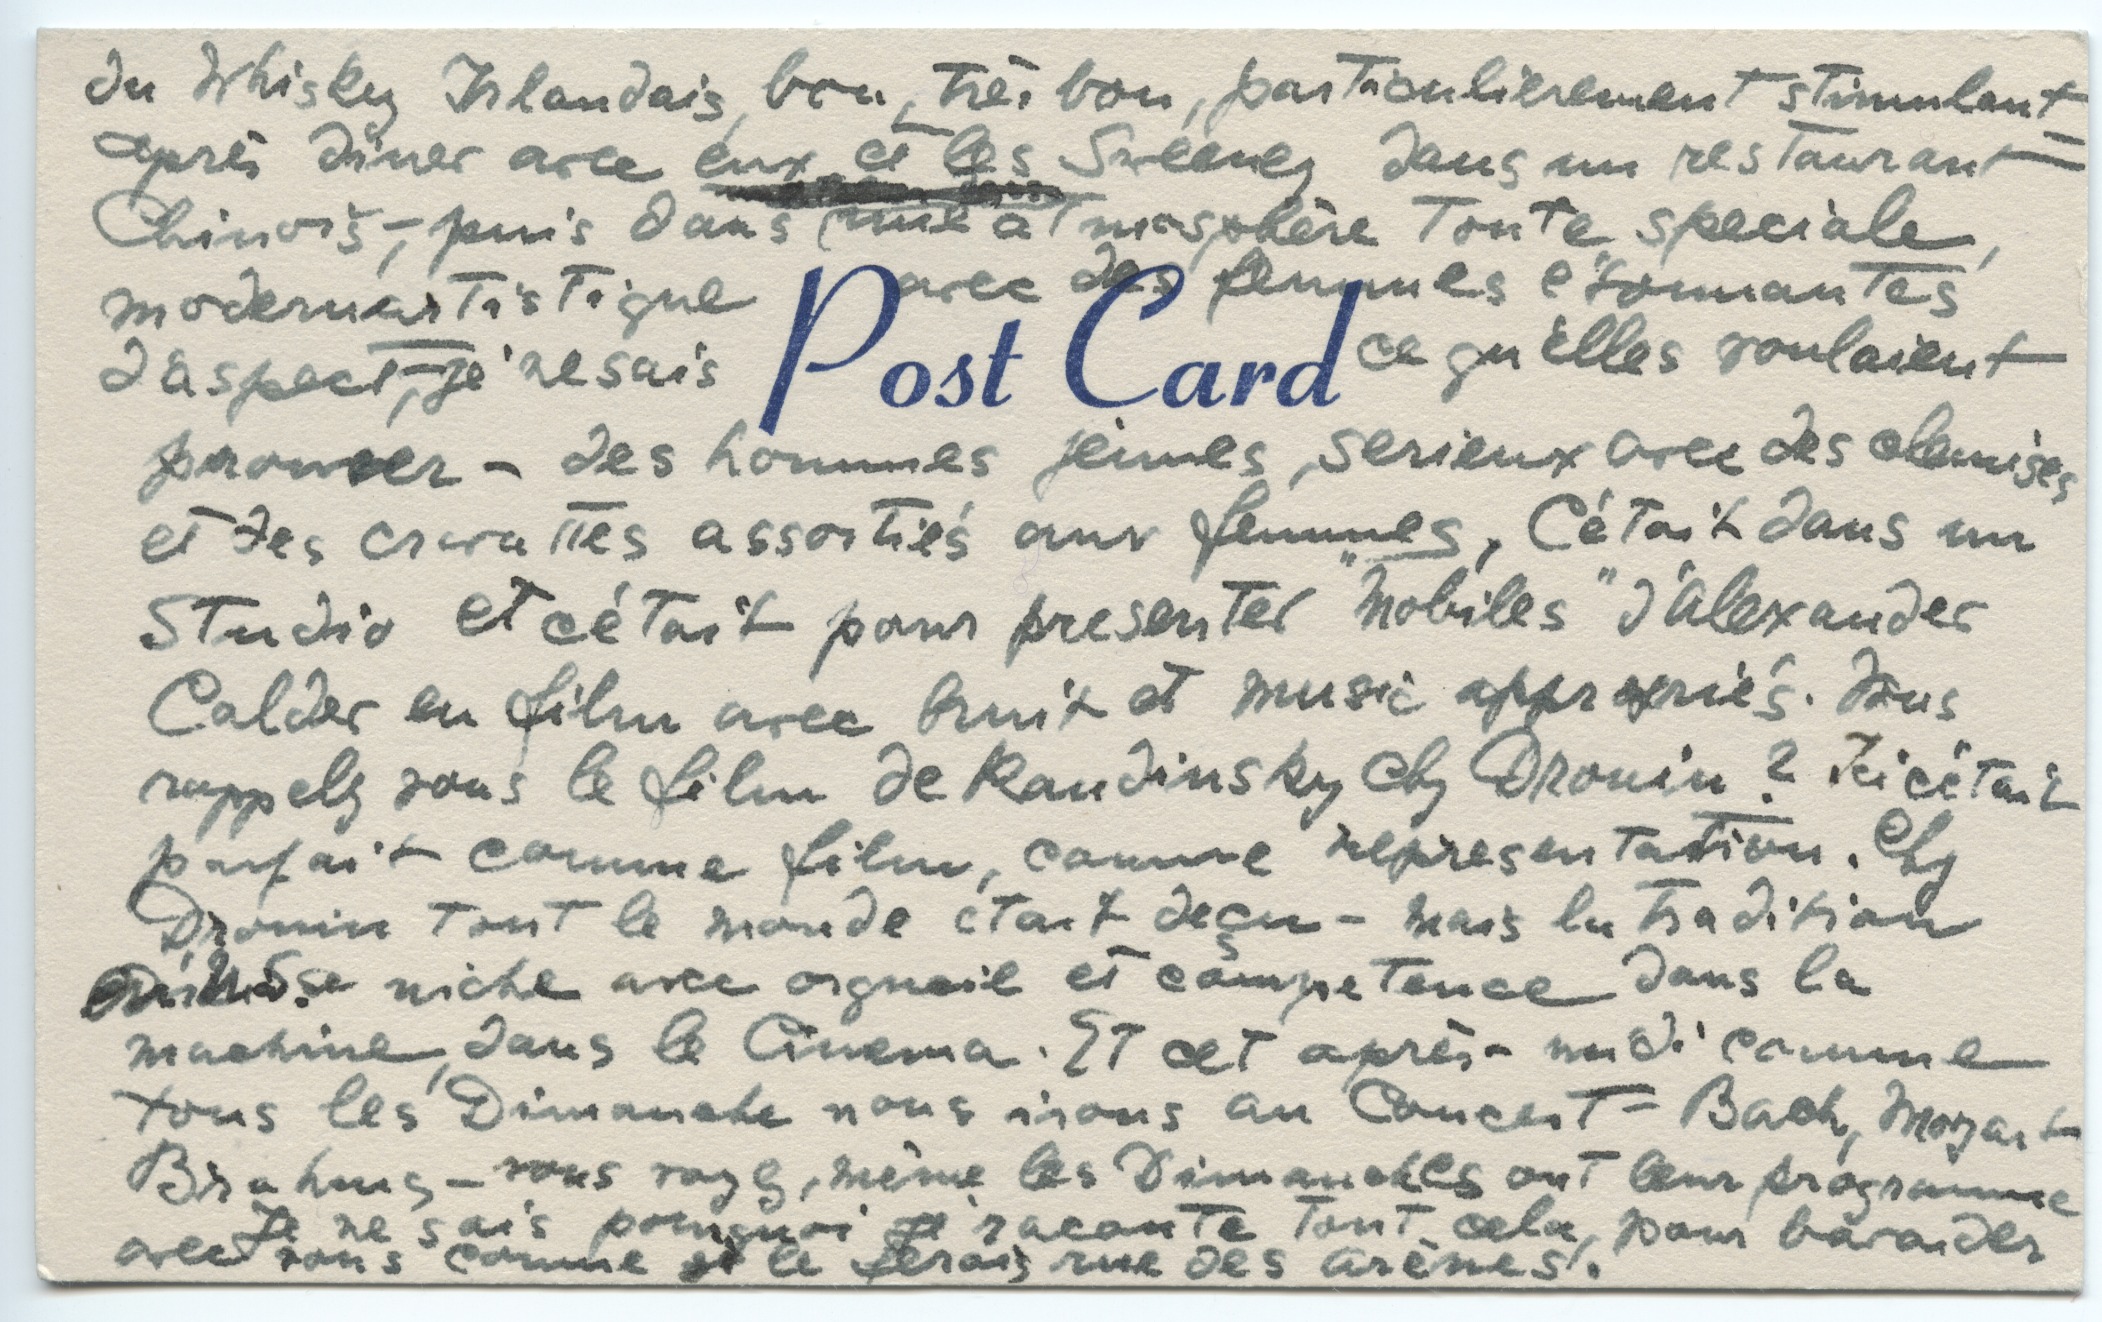 du Whisky Irlandais, bon, très bon, particulièrement stimulant
après dîner avec eux et les Sweeney dans un restaurant
Chinois -, puis dans une atmosphère toute speciale,
modernartistique avec des femmes étonnantes
d'aspect, je ne sais ce qu'elles voulaient
Post Card
prouver - des hommes jeunes, serieux avec des chemises
et des cravattes assorties aux femmes, C'était dans un
Studio et c'était pour presenter "Mobiles" d'Alexander
Calder en film avec bruit et music appropriés. Vous
rappelez vous le film de Kandinsky chez Drouin? Ici c'était
parfait comme film, comme representation. Chez
Drouin tout le monde était deçu - mais la tradition
se niche avec orgueil et competence dans la
machine, dans le Cinema. Et cet après-midi comme
tous les Dimanche nous irons au Concert - Bach, Mozart
Brahms - vous voyez, même les Dimanches ont leur programme
Je ne sais pourquoi je raconte tout cela, pour bavarder
avec vous comme si je le ferais rue des Arènes.